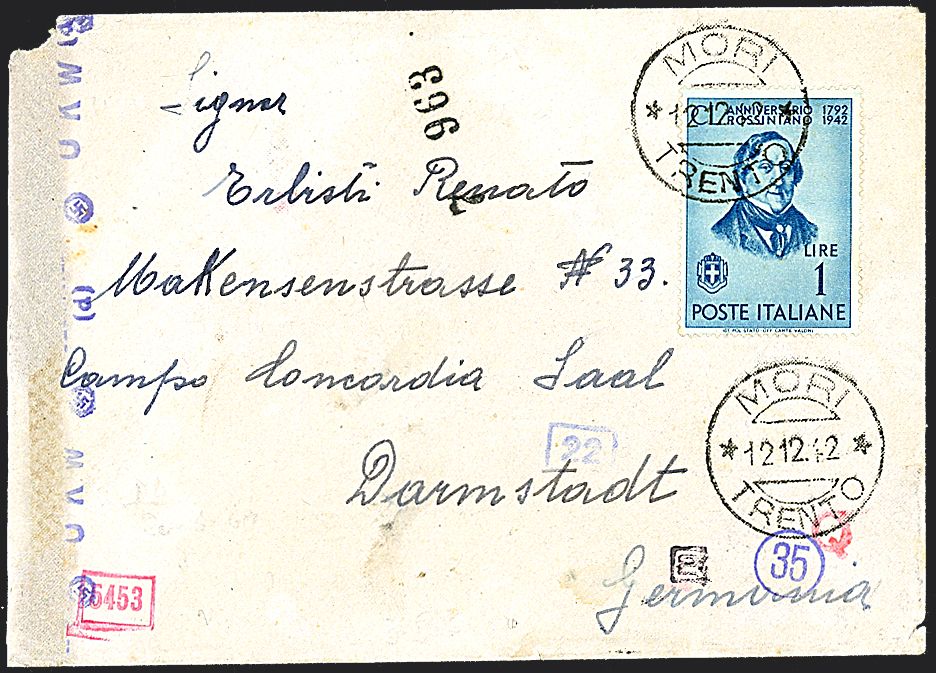 MORI
12.12.42
TRENTO
ANNIVERSARIO 1792
ROSSINIANO 1942
LIRE
1
POSTE ITALIANE
IST. POL. STATO OFF. CARTE VALORI
963
Signor
Erbisti Renato
Makensenstrasse N 33.
Campo Concordia Saal
Darmstadt
Germania
MORI
12.12.42
TRENTO
22
35
5453
O K W
(p)
O K W